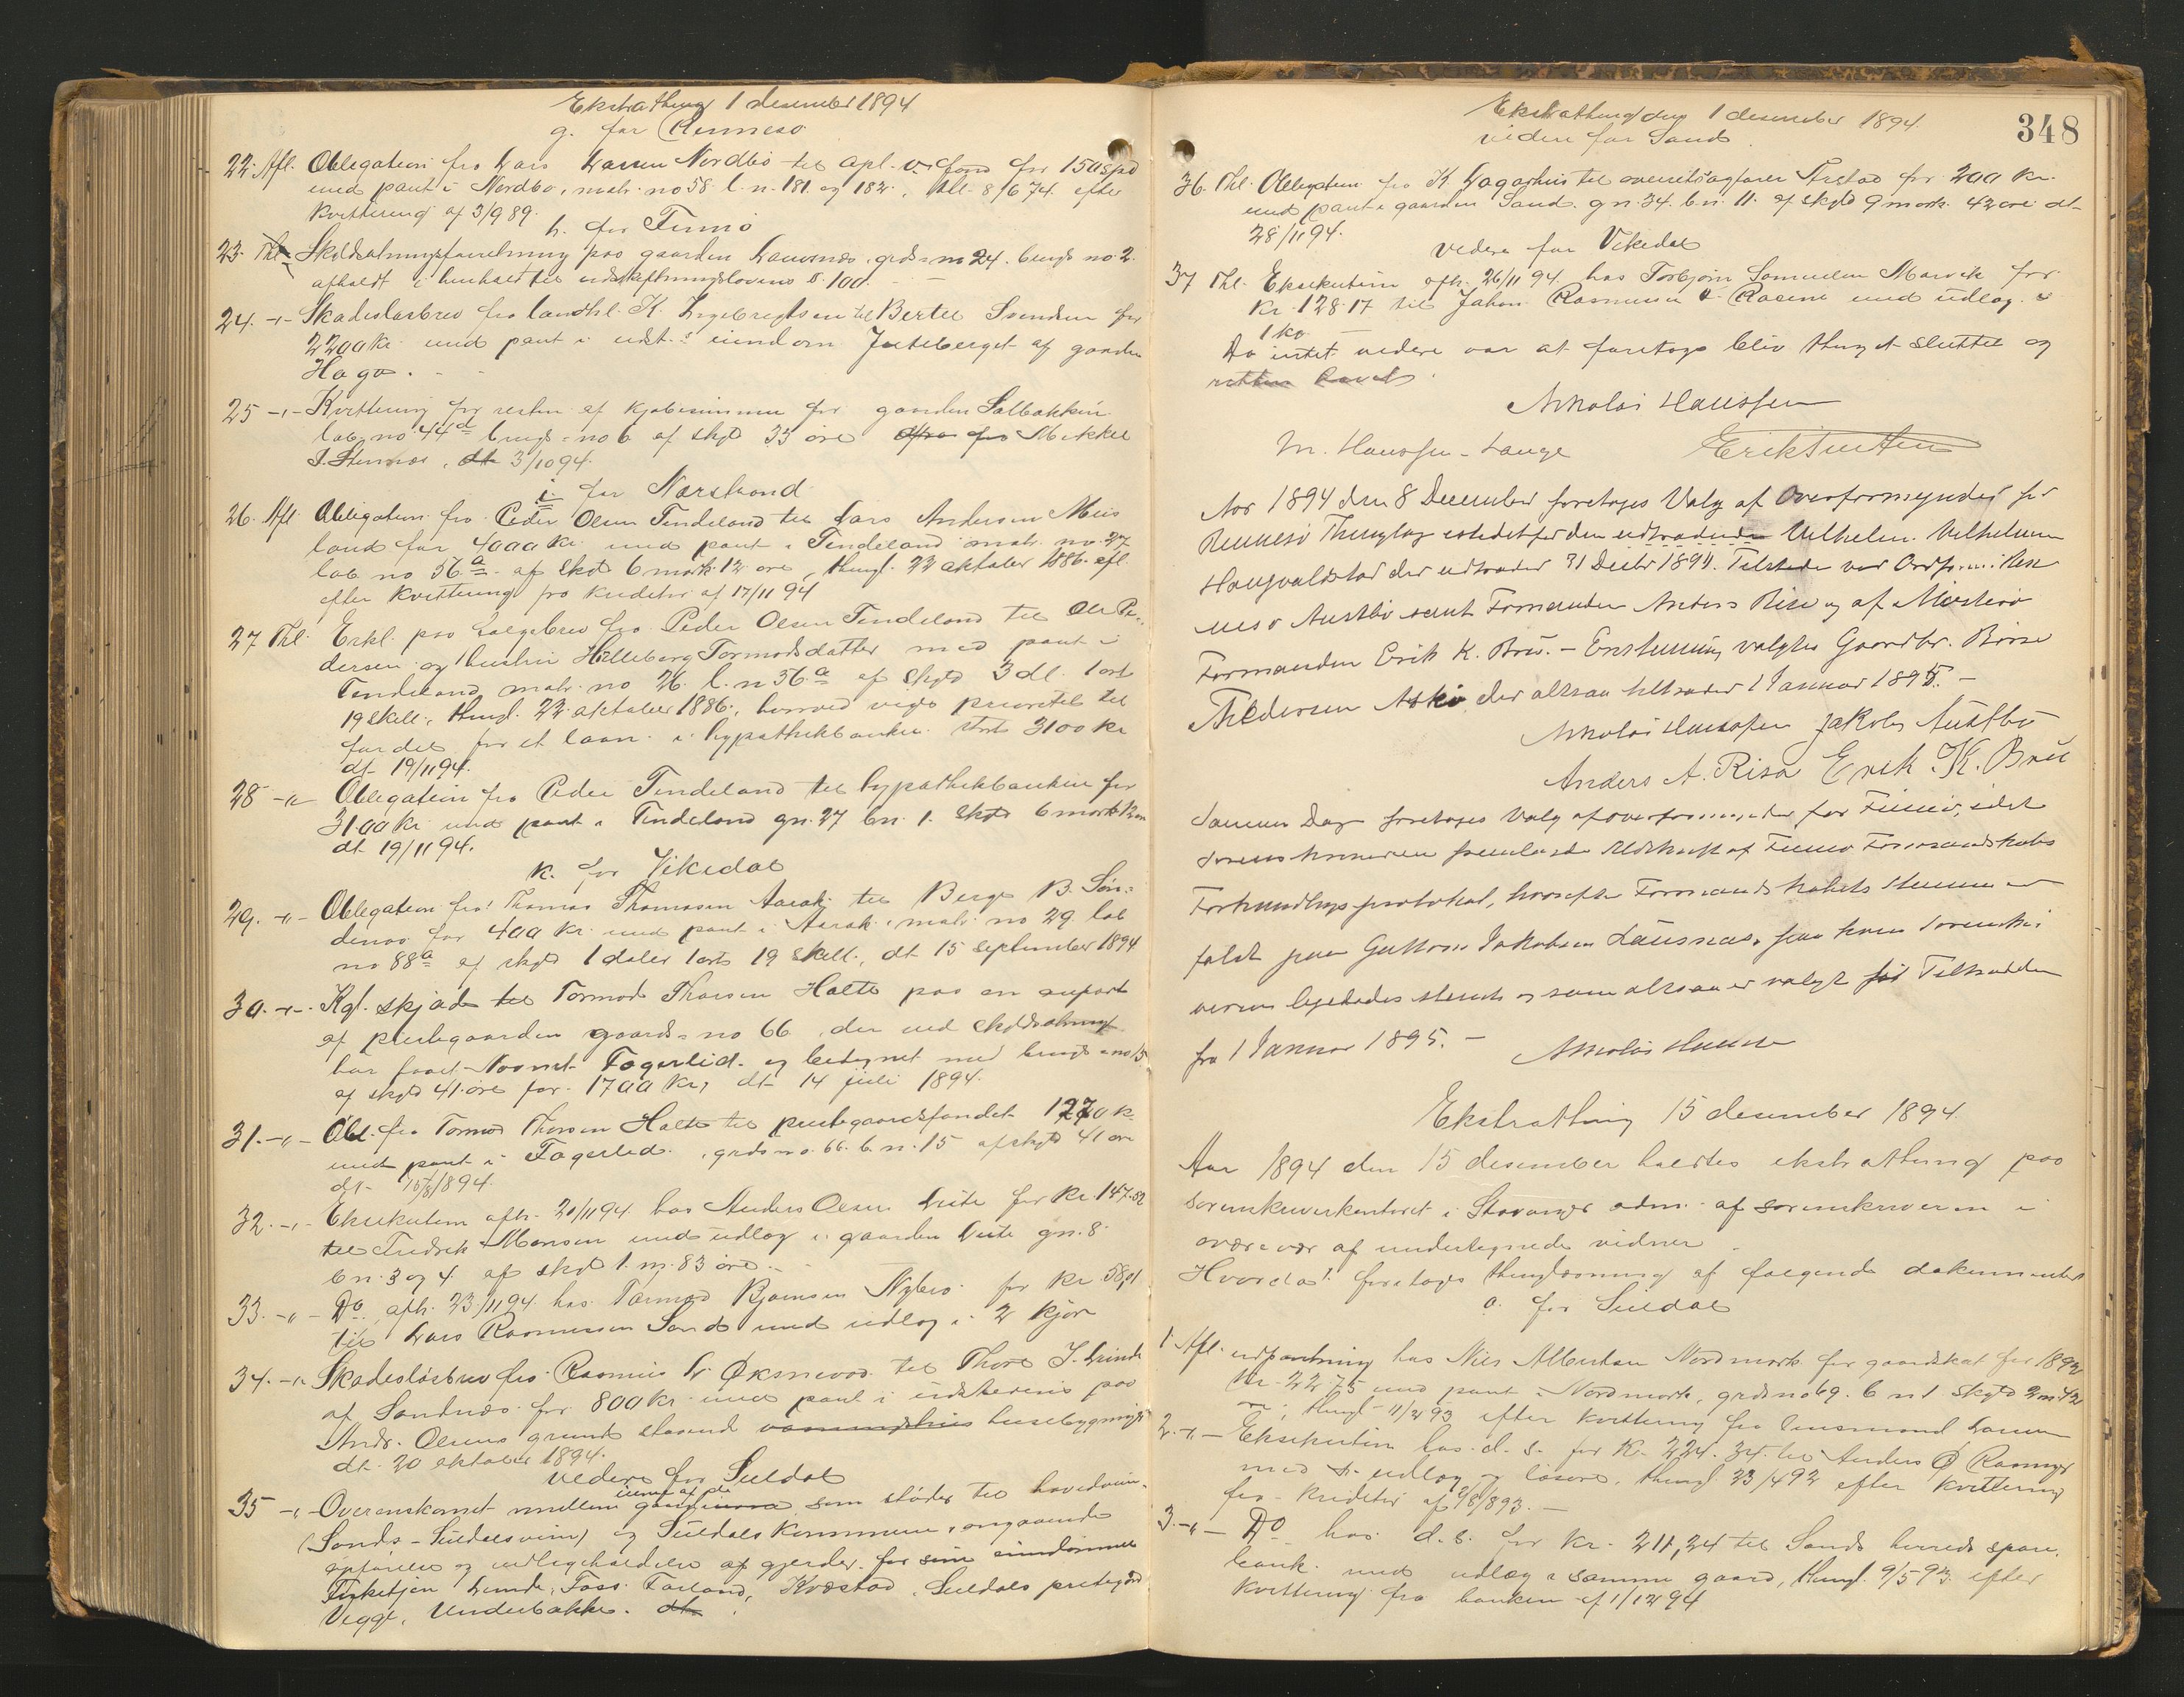 Ekstrathing 1 desember 1894
g. for Rennesø
22. Afl. Obligation fra Lars Larsen Nordbø til opl. v. fond for 150 spd
med pant i Nordbø, matr. no 58 l. n. 181 og 182, thl. 8/6 74 efter
kvittering af 3/9 89.
h. for Finnø
23. Thl. Skyldsætningsforretning paa gaarden Lausnæs, grds no 24. brugs no 2.
afholdt i henhold til udskiftningslovens § 100.
24. -"- Skadesløsbrev fra landhl. K. Ingebregtsen til Bertel Svendsen for
2200 kr med pant i udst.s eiendom Juteberget af gaarden
Haga.
25 -"- Kvittering for resten af kjøbesummen for gaarden Salbakken
løb. no 44d brugs-no 6 af skyld 33 øre fra Mikkel
J. Steinnæs, dt 3/10 94.
i for Nærstrand
26. Afl. Obligation fra Peder Olsen Tendeland til Lars Andersen Meis
land for 4000 kr. med pant i Tendeland matr. no 27,
løb no 56a af skyld 6 mark 12 øre, thingl. 22 oktober 1886. afl.
efter kvittering fra kreditor af 17/11 94
27 Thl. Erkl. paa følgebrev fra Peder Olsen Tendeland til Ole Pe-
dersen og hustru Helleborg Tormodsdatter med pant i
Tendeland matr. no 26. l. n 56a af skyld 3 dl. 1 ort
19 skill., thingl. 22 oktober 1886, hvorved viges prioritet til
fordel for et laan i hypothekbanken stort 3100 kr
dt 19/11 94.
28 -"- Obligation fra Peder Tendeland til hypothekbanken for
3100 kr med pant i Tendeland gn. 27 bn. 1. skyld 6 mark 12 øre
dt 19/11 94.
k. for Vikedal
29. -"- Obligation fra Thomas Thomasen Aarak til Berge B. Søn-
denaa for 400 kr. med pant i Aarak, matr. no 29 løb
no 88a af skyld 1 daler 1 ort 19 skill., dt 15 september 1894
30. -"- Kgl. skjøde til Tormod Thorsen Halte paa en aupart
af prestegaarden gaards-no 66, der ved skyldsætning
har faaet Navnet Fagerlid og betegnet med brugs-no 15
af skyld 41 øre for 1700 kr, dt 14 juli 1894.
31. -"- Obl. fra Tormod Thorsen Halte til prestegaardsfondet 1270 kr.
med pant i Fagerlid, grds no. 66. b. n. 15 af skyld 41 øre
dt 15/8 1894.
32. -"- Eksekution afh. 20/11 94 hos Anders Olsen Leite for kr. 147.52
til Fredrik Monsen med udlæg i gaarden Leite gn. 8
bn. 3 og 4 af skyld 1. m. 83 øre.
33. -"- Do afh. 23/11 94 hos Tormod Bjørnsen Nybro for kr 58,01
til Lars Rasmussen Sand med udlæg i 2 kjør
34. -"- Skadesløsbrev fra Rasmus L. Øksnevad til Thore J. Grinde
af Sandnæs for 800 kr med pant i udstederens paa
Andr. Olsens grund staaende vaaningshus husebygning
dt. 20 oktober 1894.
videre for Suldal
35 -"- Overenskomst mellem eierne af de gaardene som støder til hovedvein
(Sands-Suldalsvein) og Suldals kommune, angaaende
opførelse og vedligeholdelse af gjerder for sine eiendomme
Tiketjøn Lunde, Foss, Førland, Kvæstad, Suldals prestegrd
Vegge, Underbakke. dt
348
Ekstrathing den 1 desember 1894.
videre for Sand
36. Thl. Obligation fra K. Gagarhus til overretssagfører Årstad for 200 kr.
med pant i gaarden Sand. gn. 34. b. n. 11. af skyld 9 mark 42 øre dt
28/11 94.
videre for Vikedal
37 Thl. Eksekution afh. 26/11 94 hos Torbjørn Samuelsen Marvik for
kr. 128.17 til Johan Rasmussen Raane med udlæg i
1 ko
Da intet videre var at foretage blev thinget sluttet og
retten hævet.
Nikolai Haussen
M. Haussen-Lange Erik
Aar 1894 den 8 December foretoges Valg af Overformynder for
Rennesø Thinglag istedetfor den udtrædende Vilhelm Vilhelmsen
Haugvaldstad der udtræder 31 Decbr 1894. Tilstede var Ordf. i Ren
nesø Austbø samt Formanden Anders Risa og af Mosterø
Formanden Erik K. Brü. - Enstemmig valgtes Gaardbr. Børre
Thedersen Askø der altsaa tiltræder 1 Januar 1895. -
Nikolai Haussen Jakob Austbø
Anders A. Risa Erik K. Brü
Samme Dag foretoges Valg af overformynder for Finnø, idet
Sorenskriveren fremlagde Udskrift af Finnø Formandskabs
Forhandlingsprotokol, hvorefter Formandskabets Stemmer
faldt paa Guttorm Jakobsen Lausnæs, paa hvem Sorenskri
veren ligeledes stemte og som altsaa er valgt for Tiltræden
fra 1 Januar 1895. - Nikolai Haussen
Ekstrathing 15 desember 1894.
Aar 1894 den 15 desember holdtes ekstrathing paa
sorenskriverkontoret i Stavanger adm. af sorenskriveren i
overvær af undertegnede vidner.
Hvorda: foretoges thinglæsning af følgende dokumenter
a. for Suldal
1. Afl. udpantning hos Nils Albertsen Nordmork for gaardskat for 1892
kr. 22.75 med pant i Nordmork, grds no 69. b n 1. skyld 2 m 42
øre, thingl. 11/2 93 efter kvittering fra lensmand Larsen
2. -"- Eksekution hos d. s. for kr. 224.34 til Anders Ø Roaninger
med udlæg i løsøre, thingl. 23/4 92 efter kvittering
fra kreditor af 2/8 1893. -
3. -"- Do hos d. s. for kr. 211,24 til Sands herreds spare-
bank med udlæg i samme gaard, thingl. 9/5 93 efter
kvittering fra banken af 1/12 94